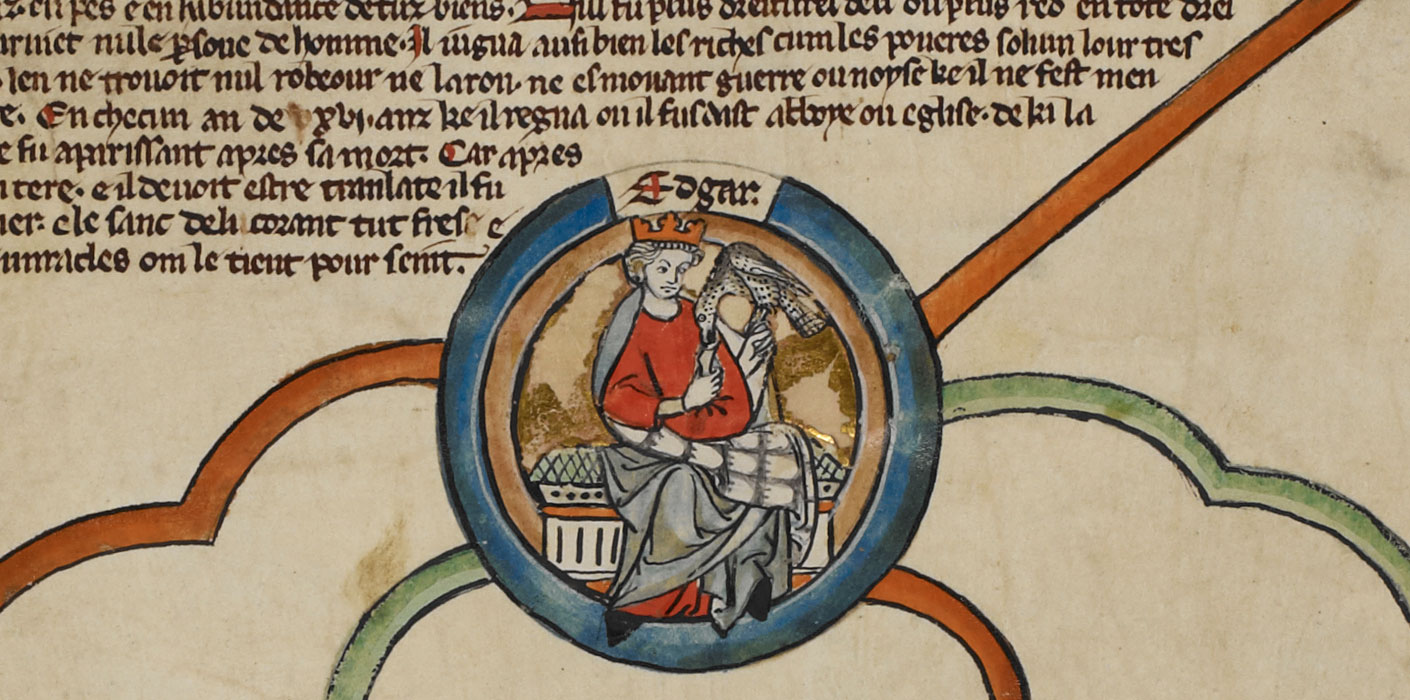 en pes e en habundance de tuz biens. Il fu plus dreiturel deli ou plus red en tote drei
nule p̱sone de homme. Il iuga ausi bien les riches cum les poueres solum lour tres
ien ne trouoit nul robeour ne laron. ne esmouant guerre ou noyse ke il ne fest men
e. En checun an de xvi. anz ke il regna ou il fusdast abboye ou eglise. de ki la
e fu aparissant apres sa mort. Car apres
tere. e il deuoit estre translate il fu
er. e le sanc de li corant tut fresc e
miracles om le tient pour seint.
Edgar.